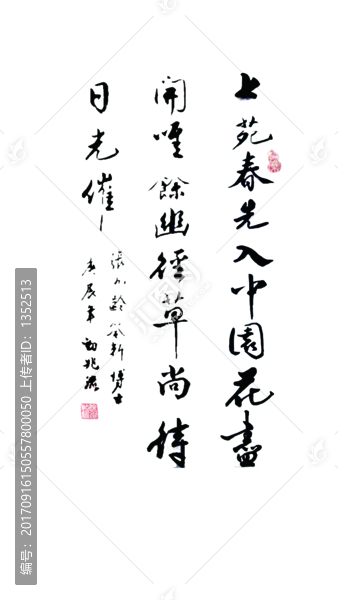 上苑春先入中園花盡
開唯餘幽徑草尚待
日光催
張九齡答靳博士
庚辰年
编号:20170916150557800050 上传者ID:1352513